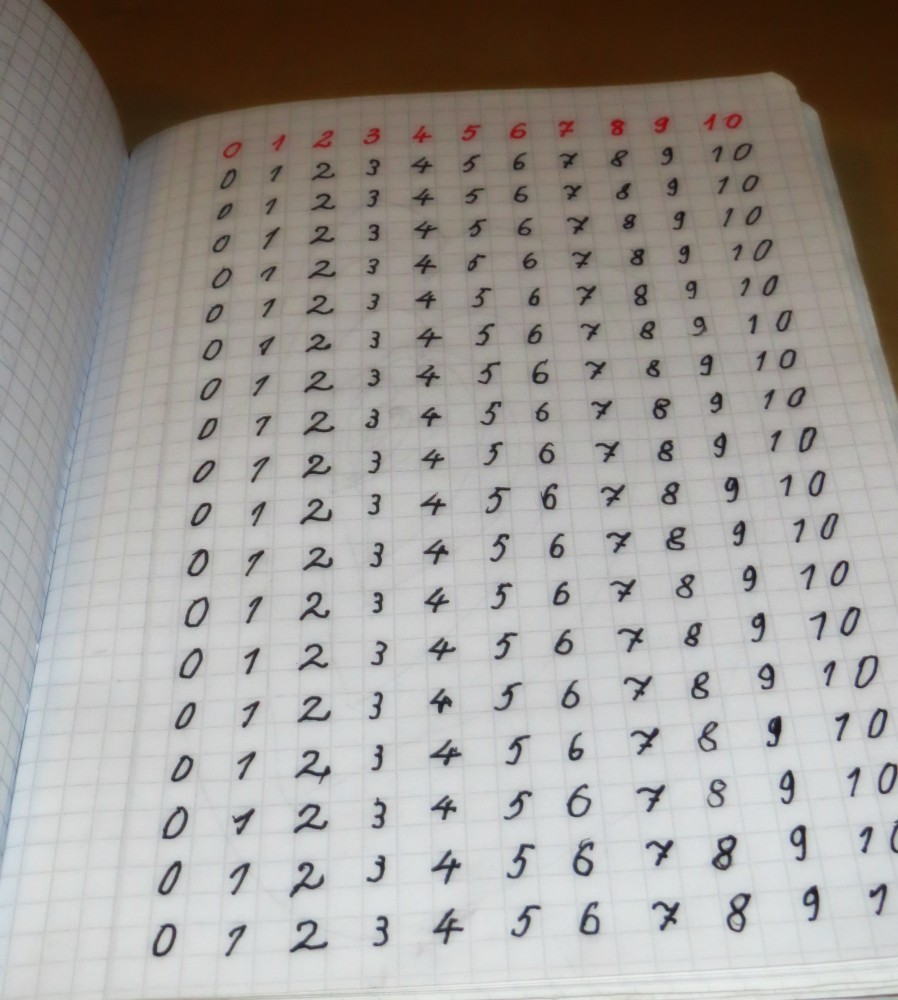 0 1 2 3 4 5 6 7 8 9 10
0 1 2 3 4 5 6 7 8 9 10
0 1 2 3 4 5 6 7 8 9 10
0 1 2 3 4 5 6 7 8 9 10
0 1 2 3 4 5 6 7 8 9 10
0 1 2 3 4 5 6 7 8 9 10
0 1 2 3 4 5 6 7 8 9 10
0 1 2 3 4 5 6 7 8 9 10
0 1 2 3 4 5 6 7 8 9 10
0 1 2 3 4 5 6 7 8 9 10
0 1 2 3 4 5 6 7 8 9 10
0 1 2 3 4 5 6 7 8 9 10
0 1 2 3 4 5 6 7 8 9 10
0 1 2 3 4 5 6 7 8 9 10
0 1 2 3 4 5 6 7 8 9 10
0 1 2 3 4 5 6 7 8 9 10
0 1 2 3 4 5 6 7 8 9 10
0 1 2 3 4 5 6 7 8 9 10
0 1 2 3 4 5 6 7 8 9 1